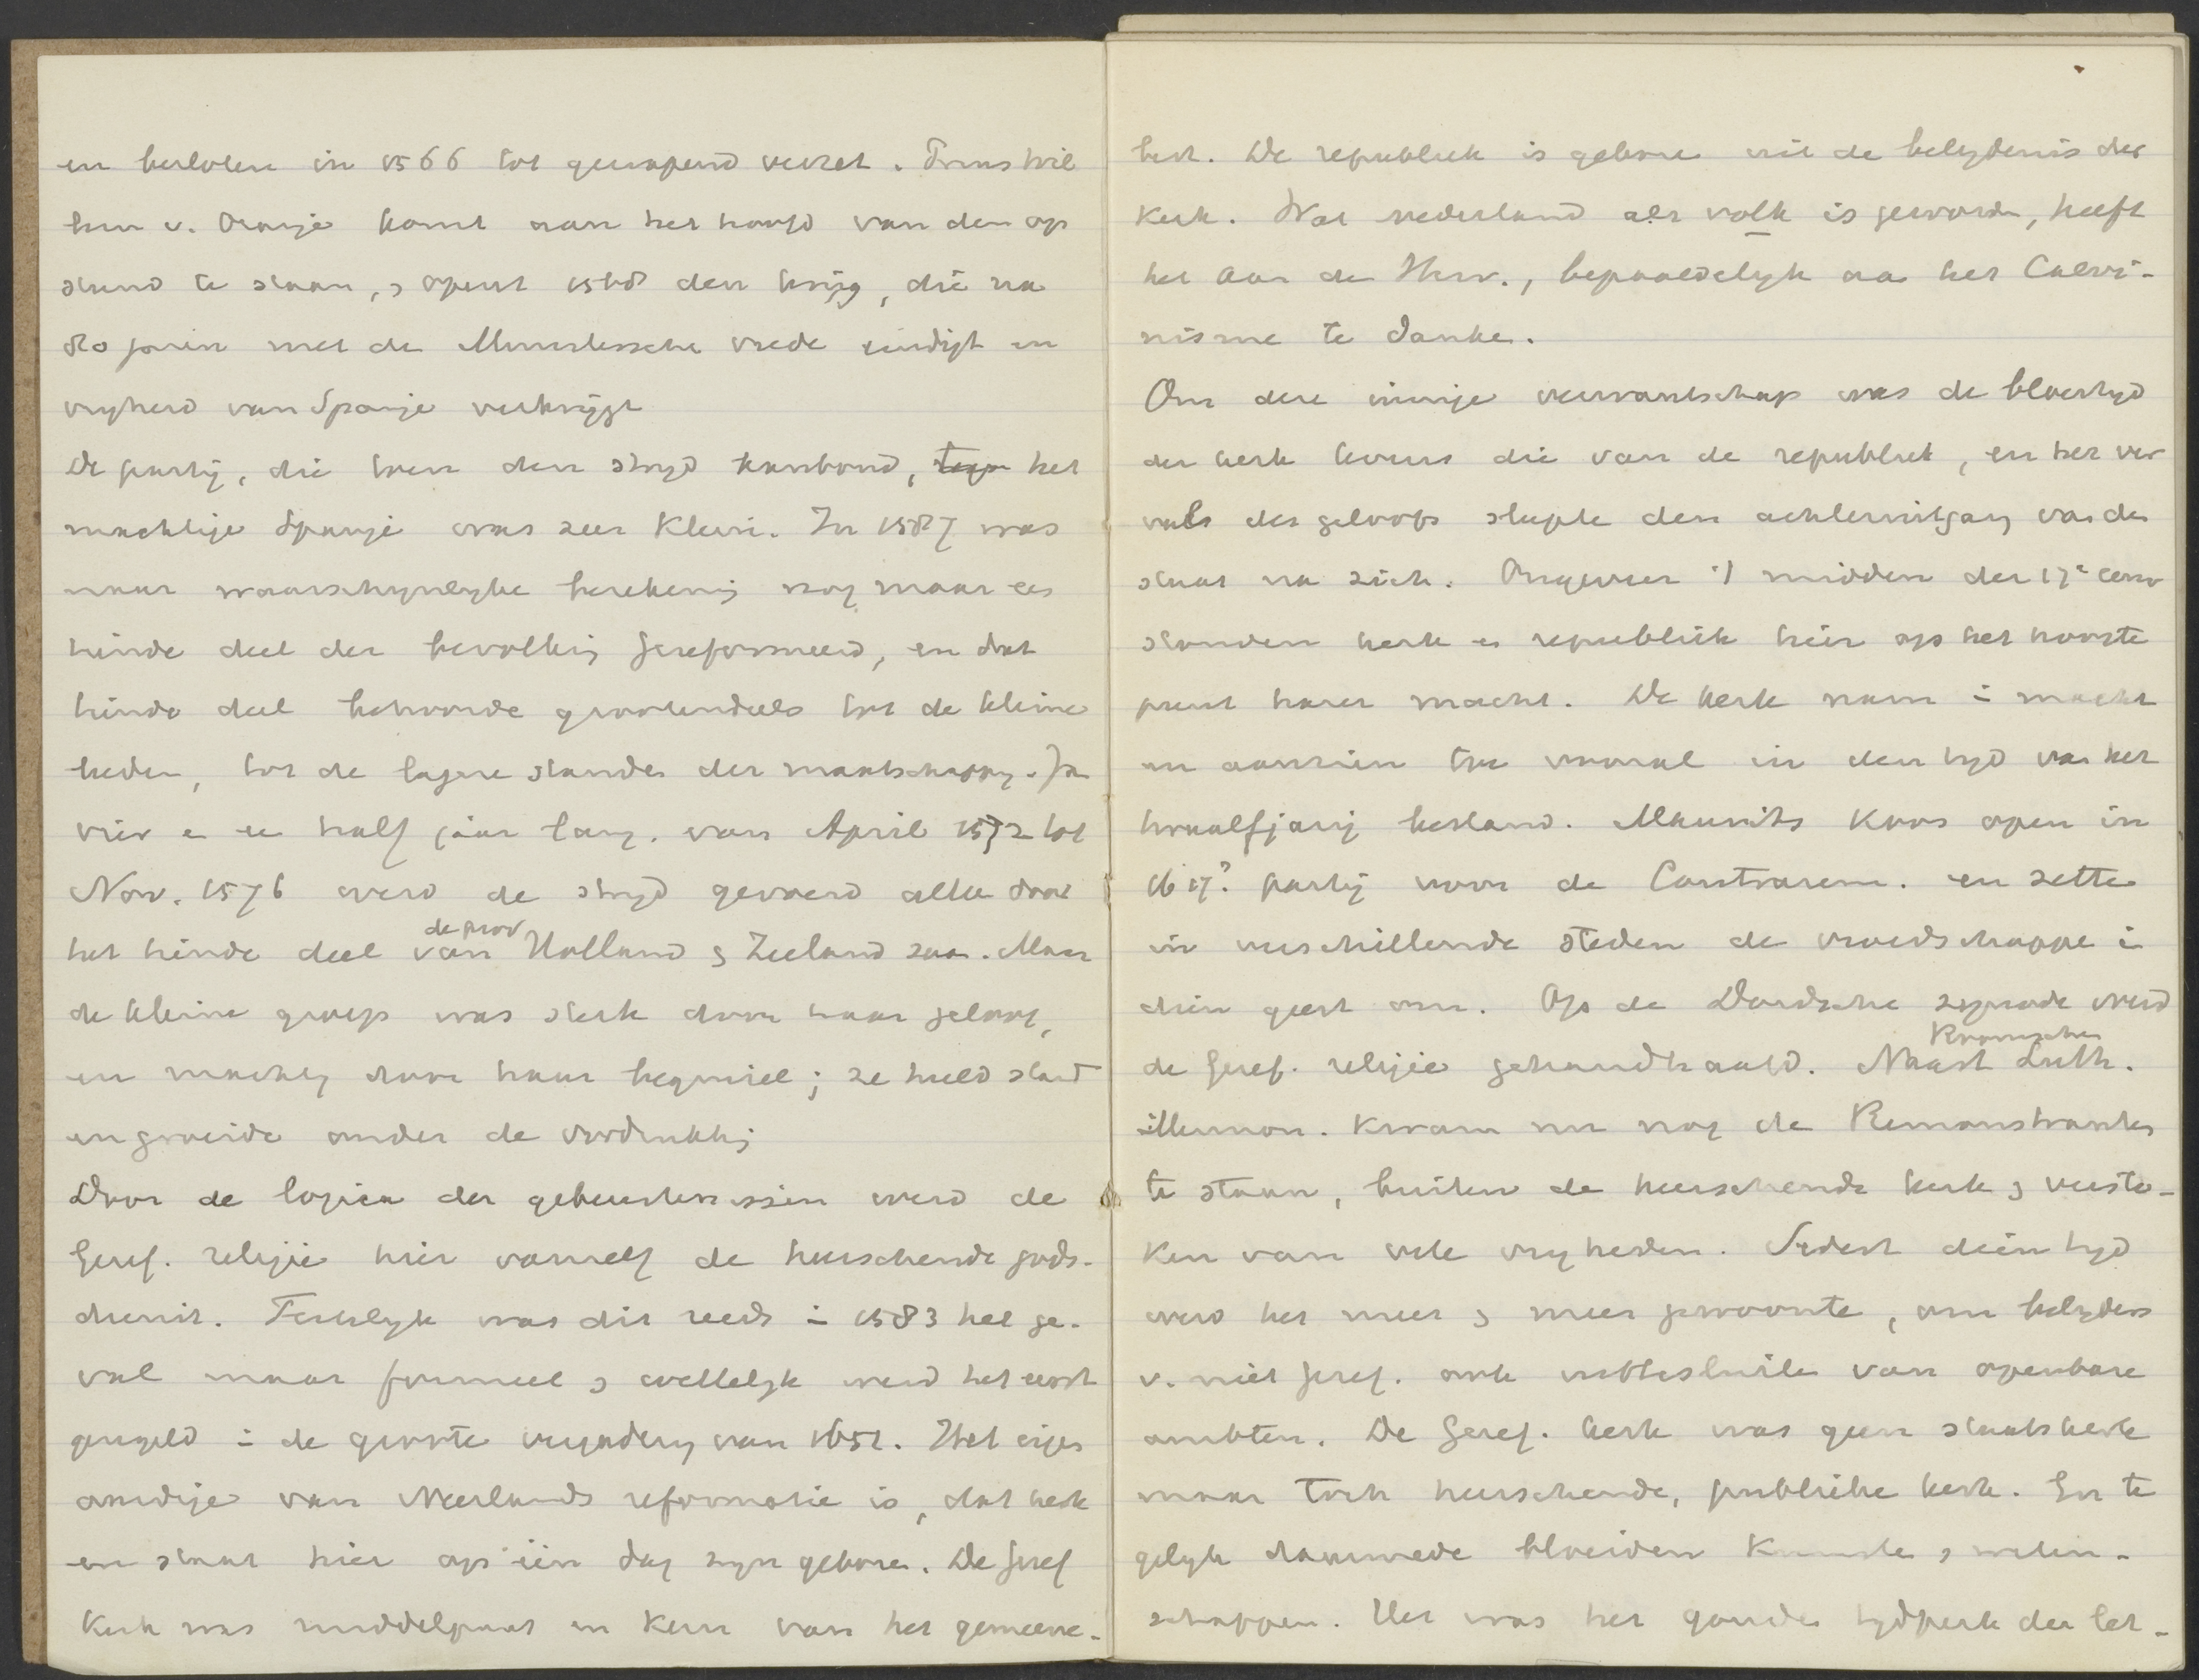 en besloten in 1566 tot gewapend verzet. Prins Wil
hem v. Oranje komt aan het hoofd van den op
stand te staan, & opent 1568 den krijg, die na
80 jaren met de Munstersche vrede eindigt en
vryheid van Spanje verkrijgt
De partij, die toen den stryd aanbond, tegen het
machtige Spanje was zeer klein. In 1587 was
naar waarschynlyke berekening nog maar een
tiende deel der bevolking gereformeerd, en dat
tiende deel behoorde grootendeels tot de kleine
lieden, tot de lagere standen der maatschappy. Ja
vier en een half jaar lang, van April 1572 tot
Nov. 1576 werd de stryd gevoerd alleen door
de prov
het tiende deel van Holland & Zeeland Maar
de kleine groep was sterk door haar geloof,
en machtig door haar beginsel; ze hield stand
en groeide onder de verdrukking
Door de logica der gebeurtenissen werd de
Geref. religie hier vanzelf de heerschende gods-
dienst. Feitelyk was dit reeds in 1583 het ge-
val maar formeel & wettelyk werd het eerst
geregeld in de groote vergadering van 1651. Het eigen
aardige van Neerlands reformatie is, dat kerk
en staat hier op één dag zyn geboren. De Geref
Kerk was middelpunt en kern van het gemeene-
best. De republiek is geboren uit de belydenis der
Kerk. Wat nederland als volk is geworden, heeft
het aan de Herv., bepaaldelyk aan het Calvi-
nisme te danken.
Om deze innige verwantschap was de bloeityd
der kerk tevens die van de republiek, en het ver
val des geloofs sleepte den achteruitgang van den
staat na zich. Ongeveer 't midden der 17e eeuw
stonden kerk en republiek hier op het hoogste
punt harer macht. De kerk nam in macht
en aanzien toe vooral in den tyd van het
twaalfjarig bestand. Maurits koos open in
1617? partij voor de Contrarem. en zette
in verschillende steden de vroedschappen in
dien geest om. Op de Dordsche synode werd
de Geref. religie gehandhaafd. Naast Roomschen Luth.
Mennon. kwam nu nog de Remonstranten
te staan, buiten de heerschende kerk & versto-
ken van vele vryheden. Sedert dien tyd
werd het meer & meer gewoonte, om belyders
v. niet geref. ook uittesluiten van openbare
ambten. De Geref. kerk was geen staatskerk
maar toch heerschende, publieke kerk. En te
gelyk daarmede bloeiden Kunsten & weten-
schappen. Het was het gouden tydperk der let-